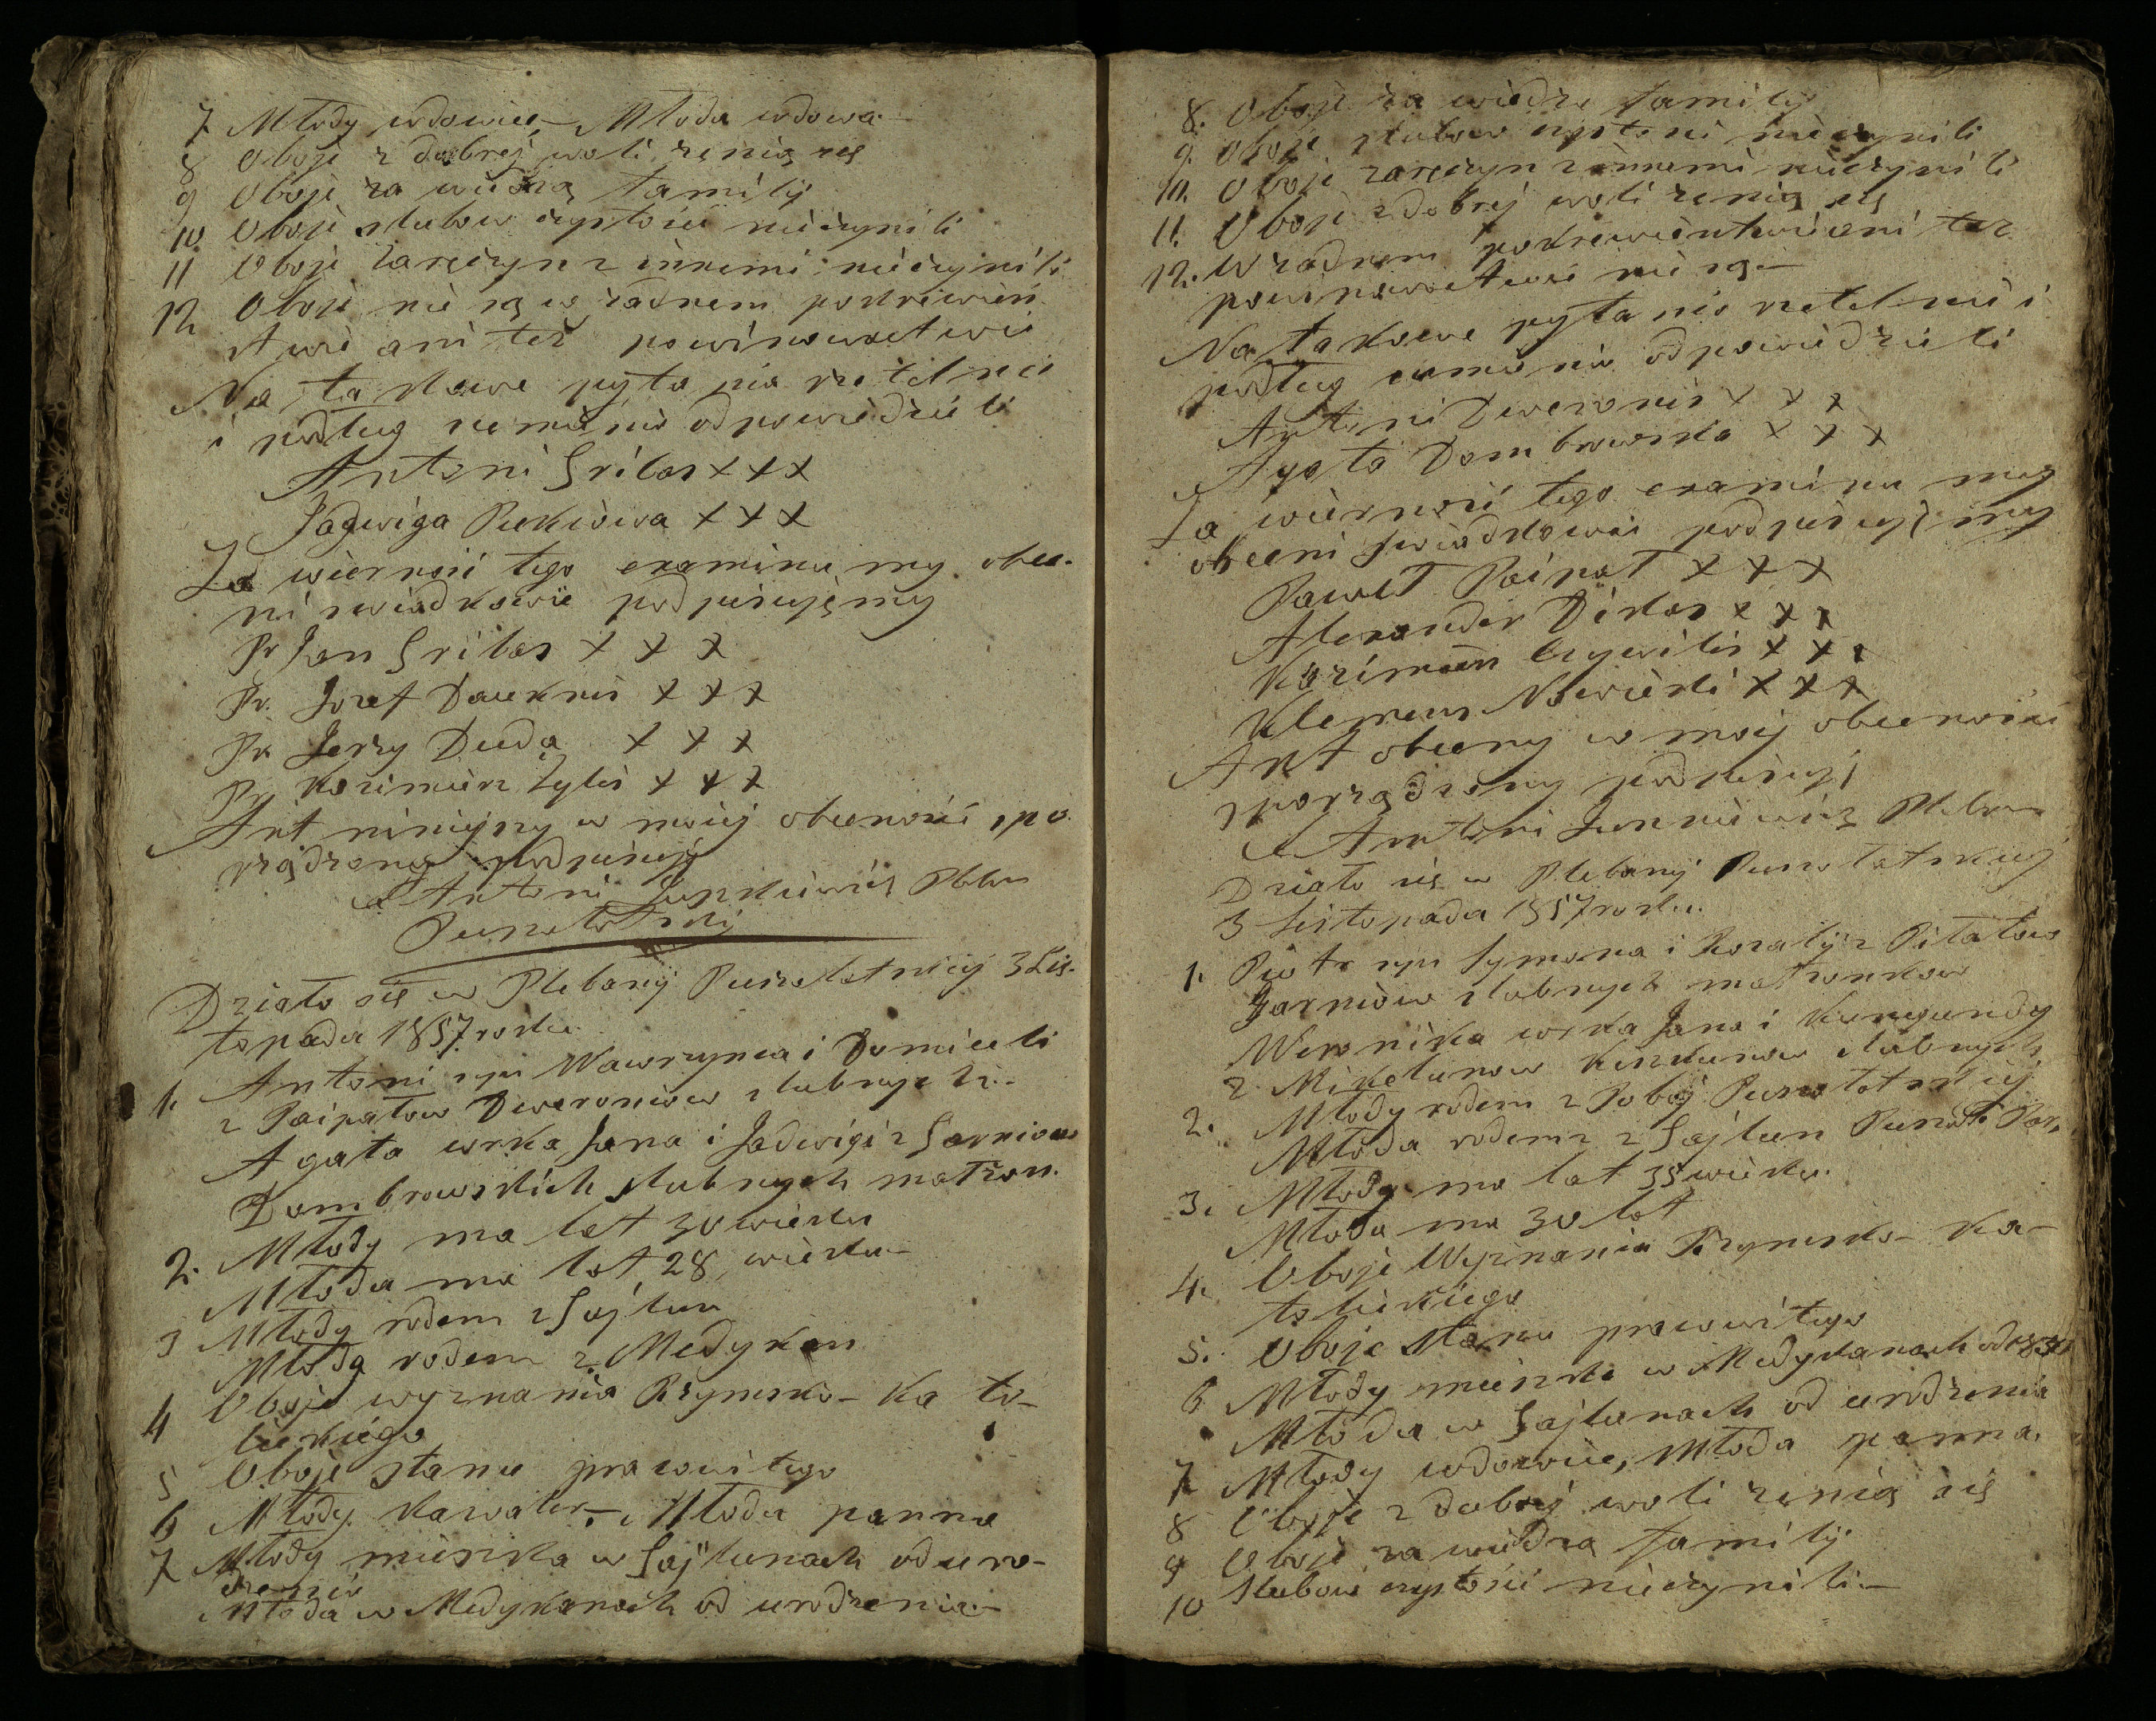 7 Młody wdowiec, – Młoda wdowa –
8 Oboje z dobrej woli żenią się
9 Oboje za wiedzą familij
10 Oboje slubow czystości nieczynili
11 Oboje zaręczyn z innemi nieczynili
12 Oboje nie są w żadnem pokriewień
stwie ani też powinowactwie
Na takowe pytania rzetelnie
i podług sumienia odpowiedzieli
Antoni Gribas XXX
Jadwiga XXX
Za wierność tego examinu my obec-
ni swiadkowie podpisujęmy
Pr Jan Gribas X X X
Pr. Jozef Dauknis X X X
Pr. Jerzy Duda X X X
Pr. Kazimierz Zylis X X X
Akt niniejszy w mojej obecności spo
rządzony podpisuję
Antoni Pleban
Działo się w Plebanij 3 Lis-
topada 1857 roku.
1. Antoni syn Wawrzynca i Domiceli
z Paipałow Dweroniow slubnych. -
Agata corka Jana i Jadwigi z
Dombrowskich slubnych małżon.
2. Młody ma lat 30 wieku
Młoda ma lat 28 wieku –
3 Młody rodem z Gajlun
Młoda rodem z Medykan
4 Oboje wyznania Rzymsko – Ka to –
lickiego
5 Oboje stanu prawnitego
6 Młody kawaler – Młoda panna
7 Młody mieszka w Gajlunach od uro –
dzenia
Młoda w Medykanach od urodzenia –
8. Oboje za wiedzą familij
9. Oboje slubow czystości nieczynili
10. Oboje zaręczyn z innemi nieczynili
11. Oboje z dobrej woli żenią się
12. W żadnem pokrewieństwie ani też
powinowactwie nie są –
Na takowe pytania rzetelnie i
podług sumienia odpowiedzieli
Antoni Dweronis X X X
Agata Dombrowska X X X
Za wierność tego examinu my
obecni swiadkowie podpisujęmy
Paweł Paipał X X X
Alexander X X X
Kazimierz X X X
Klemens Nowicki X X X
Akt obecny w mojej obecności
sporządzony podpisuję
Antoni Pleban
Działo się w Plebanij
3 Listopada 1857 roku.
1. Piotr syn Symona i Rozalij z
slubnych małżonkow
Weronika corka Jana i Kunegundy
z slubnych
2. Młody rodem z
Młoda rodem z Gajlun Par.
3. Młody ma lat 35 wieku.
Młoda ma 30 lat
4. Oboje Wyznania Rzymsko – Ka –
tolickiego
5. Oboje stanu prawnitego
6 Młody mieszka w Medykanach od
Młoda w Gajlunach od urodzenia
7 Młody wdowiec, Młoda panna.
8 Oboje z dobrej woli żenią się
9 Oboje za wiedzą familij
10 Slubow czystości nieczynili –